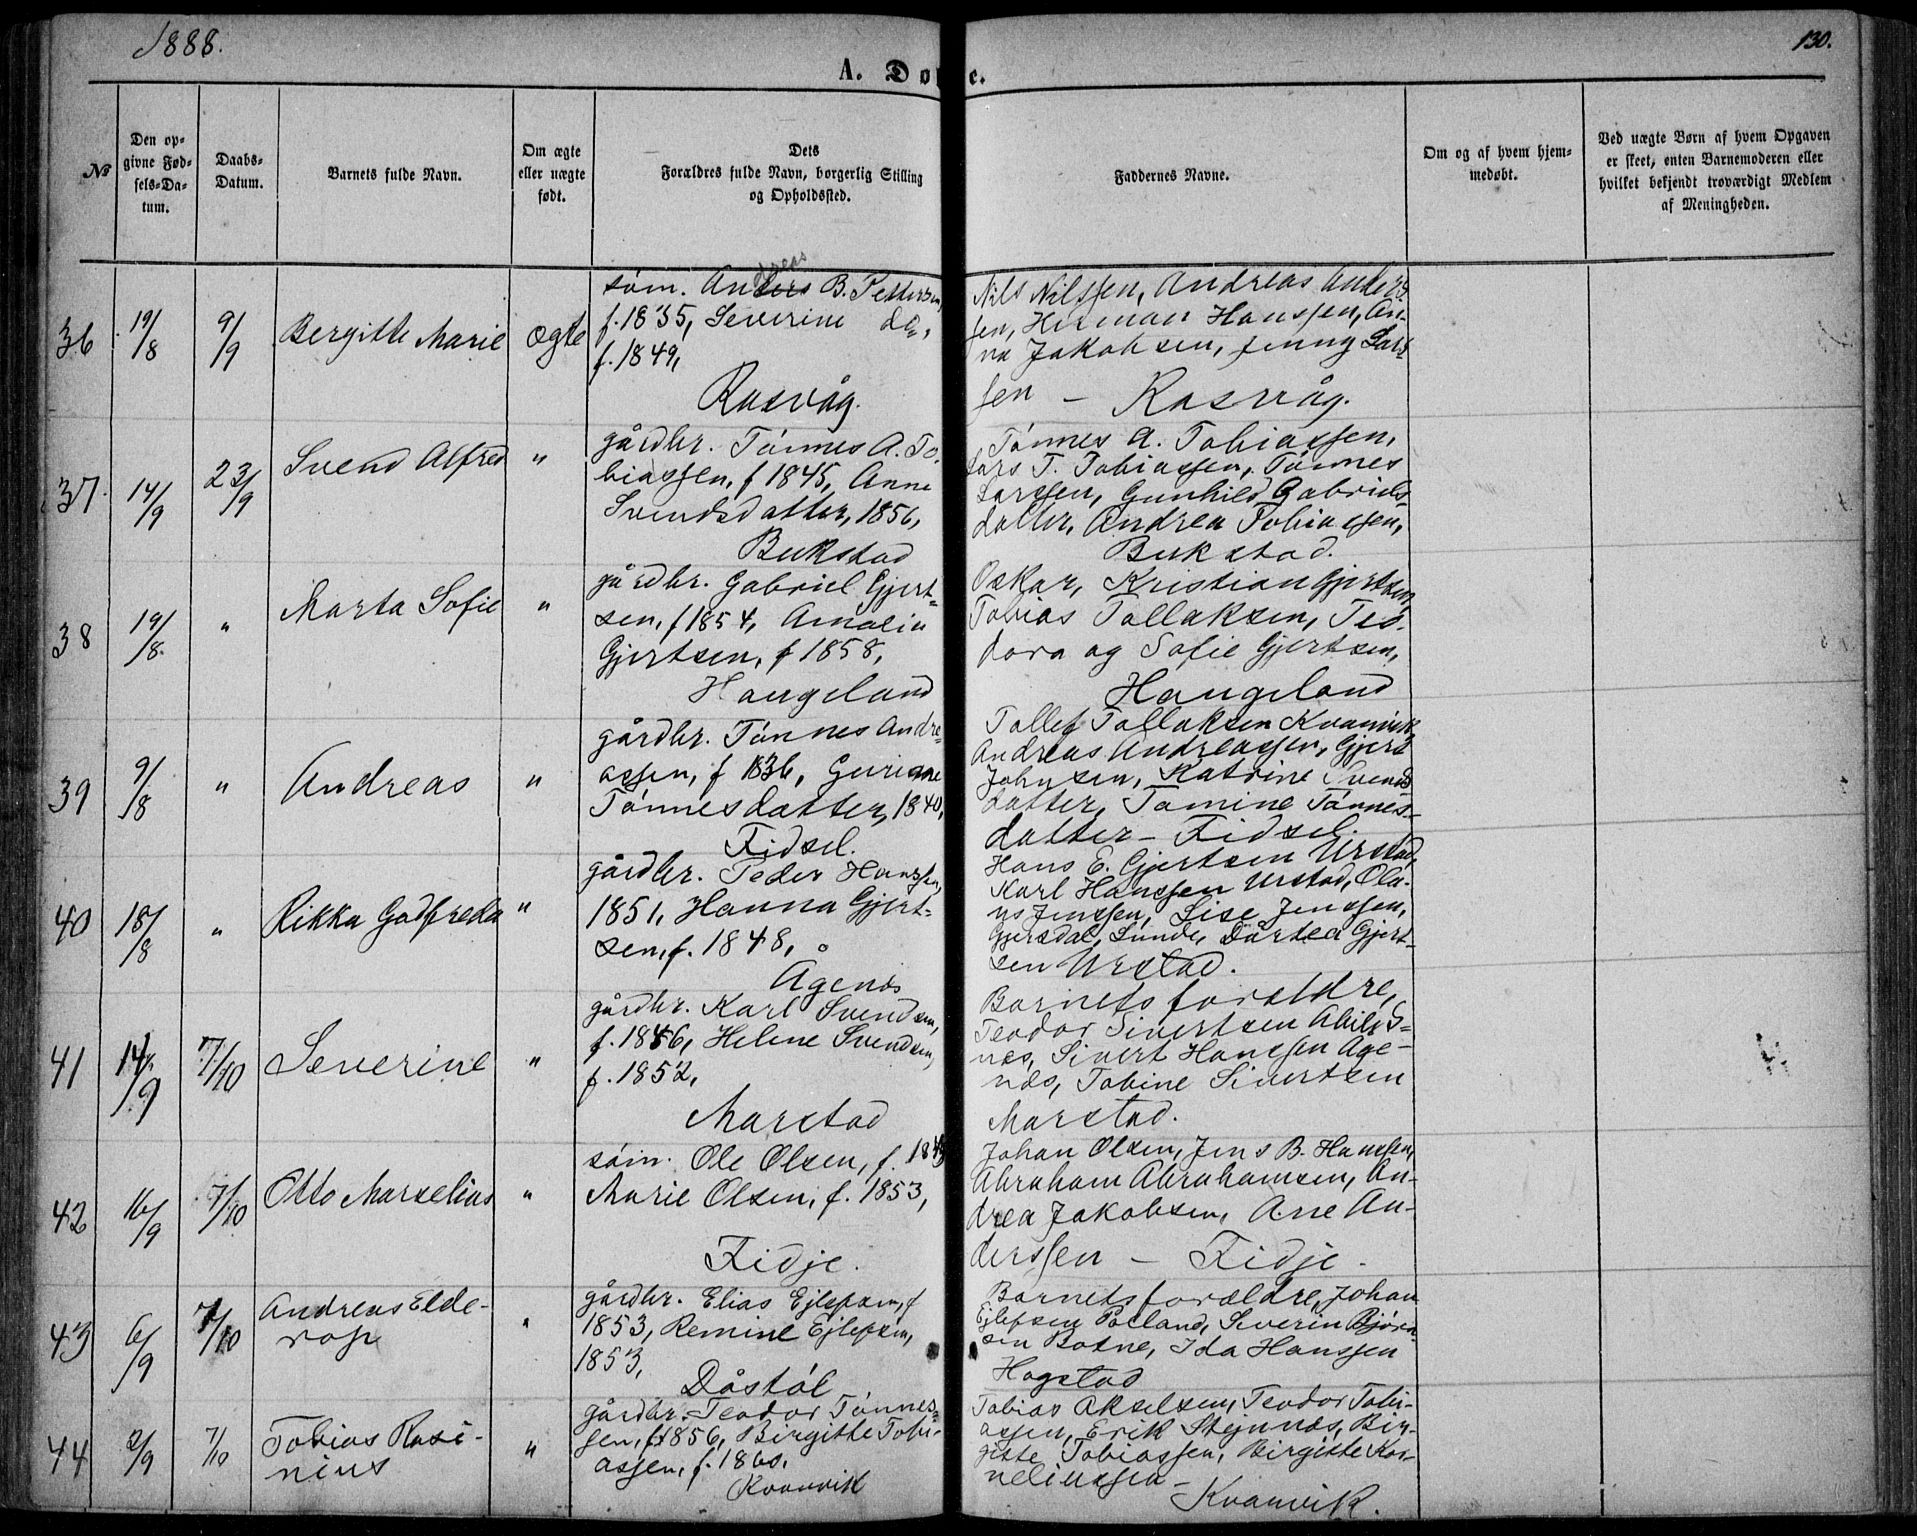 1888.
130.
A. Døpte.
№
Den op-
givne Fød-
sels-Da-
tum.
Daabs-
Datum.
Barnets fulde Navn.
Om ægte
eller uægte
født.
Dets
Forældres fulde Navn, borgerlig Stilling
og Opholdssted.
Faddernes Navne.
Om og af hvem hjem-
medøbt.
Ved uægte Børn af hvem Opgaven
er skeet, enten Barnemoderen eller
hvilket bekjendt troværdigt Medlem
af Menigheden.
36
19/8
9/9
Bergitte Marie
Ægte
søm. Anders B. Pettersen,
dreas
f. 1835, Severine do,
f. 1849,
Rasvåg.
Nils Nilssen, Andreas Anders-
sen, Herman Hanssen, An-
na Jakobsen, Jenny Lars-
sen – Rasvåg.
37.
14/9
23/9
Svend Alfred
"
gårdbr. Tønnes A. To-
biassen, f 1845, Anne
Svendsdatter, 1856,
Bukstad
Tønnes A. Tobiassen,
Lars T. Tobiassen, Tønnes
Larssen, Gunhild Gabriels-
datter, Andrea Tobiassen,
Bukstad.
38
19/8.
"
Marta Sofie
"
gårdbr. Gabriel Gjert-
sen, f 1854, Amalia
Gjertsen, f 1858,
Haugeland
Oskar, Kristian Gjertsen,
Tobias Tollaksen, Teo-
dora og Sofie Gjertsen,
Haugeland
39
9/8
"
Andreas
"
gårdbr. Tønnes Andre-
assen, f 1836, Guriane
Tønnesdatter, 1840,
Fidsel.
Tollef Tollaksen Kvanvik,
Andreas Andreassen, Gjert
Johnsen, Katrine Svends
datter, Tomine Tønnes-
datter – Fidsel.
40
18/8
"
Rikka Godfreda
"
gårdbr. Peder Hanssen,
1851, Hanna Gjert-
sen, f. 1848,
Agenæs
Hans E. Gjertsen Urstad,
Karl Hanssen Urstad, Ola-
us Jenssen, Lise Jenssen,
Gjersdal, Sunde, Dortea Gjert-
sen Urstad.
41
14/9
7/10
Severine
"
gårdbr. Karl Svendsen,
f. 1846, Helene Svendsen,
f. 1852,
Marstad
Barnets forældre,
Teodor Sivertsen Abils-
næs, Sivert Hanssen Age-
næs, Tobine Sivertsen
Marstad.
42
16/9
7/10
Otto Marselius
"
søm. Ole Olsen, f. 1849
Marie Olsen, f. 1853,
Fidje.
Johan Olsen, Jens B. Hanssen,
Abraham Abrahamsen, An-
drea Jakobsen, Ane An-
derssen – Fidje.
43
6/9
7/10
Andreas Elde-
rop
"
gårdbr. Elias Ejlefsen, f
1853, Remine Ejlefsen,
1853,
Dåstøl
Barnets forældre, Johan
Ejlefsen Potland, Severin Bjørn-
sen Botne, Ida Hanssen
Hogstad
44
2/9
7/10
Tobias Rasi-
nius
"
gårdbr. Teodor Tønnes-
sen, f. 1856, Birgitte Tobi-
assen, f. 1860,
Kvanvik
Tobias Akselsen, Teodor Tobi-
assen, Erik Stejnnæs, Bir-
gitte Tobiassen, Birgitte Kor-
neliussen –
Kvanvik.